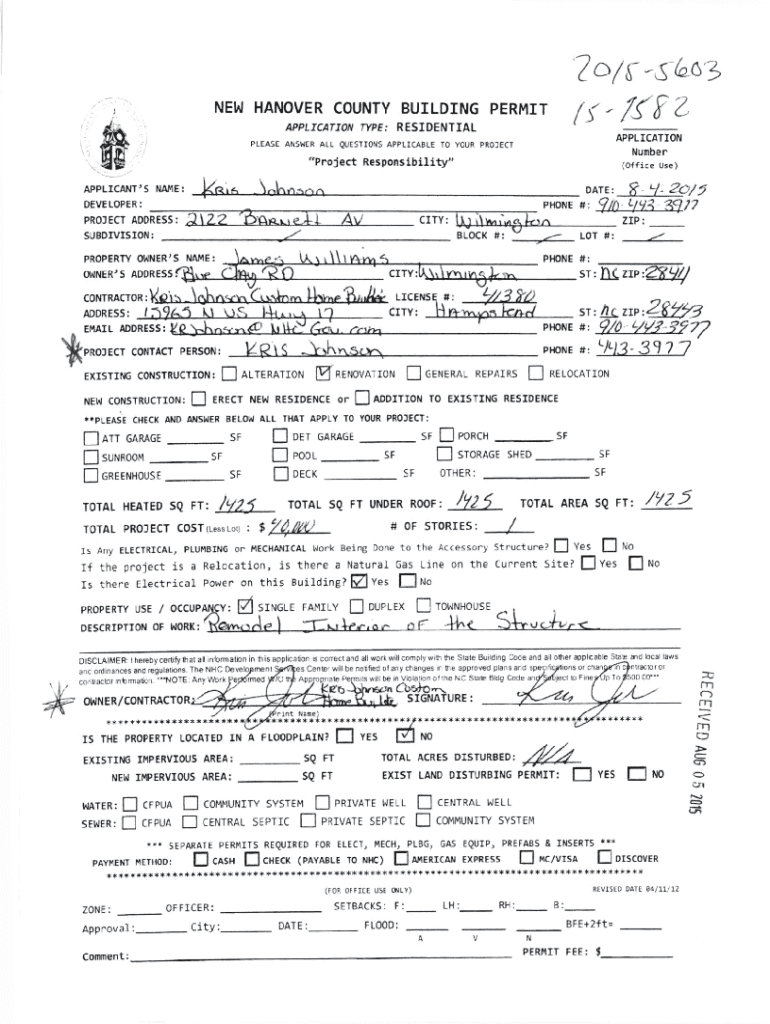 2015-5603
NEW HANOVER COUNTY BUILDING PERMIT 15-1582
APPLICATION TYPE: RESIDENTIAL
PLEASE ANSWER ALL QUESTIONS APPLICABLE TO YOUR PROJECT
"Project Responsibility"
APPLICATION
Number
(Office Use)
APPLICANT'S NAME: Kris Johnson DATE: 8-4-2015
DEVELOPER: PHONE #: 910-443-3977
PROJECT ADDRESS: 2122 Barnett AV CITY: Wilmington ZIP:
SUBDIVISION: BLOCK #: LOT #:
PROPERTY OWNER'S NAME: James Williams PHONE #:
OWNER'S ADDRESS: Blue Clay RD CITY: Wilmington ST: NC ZIP: 28411
CONTRACTOR: Kris Johnson Custom Home Builder LICENSE #: 41380
ADDRESS: 15965 N US Hwy 17 CITY: Hampstead ST: NC ZIP: 28443
EMAIL ADDRESS: KRJohnson@NHCGov.com PHONE #: 910-443-3977
PROJECT CONTACT PERSON: KRIS Johnson PHONE #: 443-3977
EXISTING CONSTRUCTION: ALTERATION RENOVATION GENERAL REPAIRS RELOCATION
NEW CONSTRUCTION: ERECT NEW RESIDENCE or ADDITION TO EXISTING RESIDENCE
**PLEASE CHECK AND ANSWER BELOW ALL THAT APPLY TO YOUR PROJECT:
ATT GARAGE SF DET GARAGE SF PORCH SF
SUNROOM SF POOL SF STORAGE SHED SF
GREENHOUSE SF DECK SF OTHER: SF
TOTAL HEATED SQ FT: 1425 TOTAL SQ FT UNDER ROOF: 1425 TOTAL AREA SQ FT: 1425
TOTAL PROJECT COST (Less Lot) : $ 40,000 # OF STORIES: 1
Is Any ELECTRICAL, PLUMBING or MECHANICAL Work Being Done to the Accessory Structure? Yes No
If the project is a Relocation, is there a Natural Gas Line on the Current Site? Yes No
Is there Electrical Power on this Building? Yes No
PROPERTY USE / OCCUPANCY: SINGLE FAMILY DUPLEX TOWNHOUSE
DESCRIPTION OF WORK: Remodel Interior of the Structure
DISCLAIMER: I hereby certify that all information in this application is correct and all work will comply with the State Building Code and all other applicable State and local laws
and ordinances and regulations. The NHC Development Services Center will be notified of any changes in the approved plans and specifications or change in contractor or
contractor information. ***NOTE: Any Work Performed W/O the Appropriate Permits will be in Violation of the NC State Bldg Code and Subject to Fines Up To $500.00***
Kris Johnson Custom
OWNER/CONTRACTOR: Home Builder SIGNATURE:
(Print Name)
IS THE PROPERTY LOCATED IN A FLOODPLAIN? YES NO
EXISTING IMPERVIOUS AREA: SQ FT TOTAL ACRES DISTURBED: N/A
NEW IMPERVIOUS AREA: SQ FT EXIST LAND DISTURBING PERMIT: YES NO
RECEIVED AUG 05 2015
WATER: CFPUA COMMUNITY SYSTEM PRIVATE WELL CENTRAL WELL
SEWER: CFPUA CENTRAL SEPTIC PRIVATE SEPTIC COMMUNITY SYSTEM
*** SEPARATE PERMITS REQUIRED FOR ELECT, MECH, PLBG, GAS EQUIP, PREFABS & INSERTS ***
PAYMENT METHOD: CASH CHECK (PAYABLE TO NHC) AMERICAN EXPRESS MC/VISA DISCOVER
(FOR OFFICE USE ONLY) REVISED DATE 04/11/12
ZONE: OFFICER: SETBACKS: F: LH: RH: B:
Approval: City: DATE: FLOOD: BFE+2ft=
A V N
Comment: PERMIT FEE: $